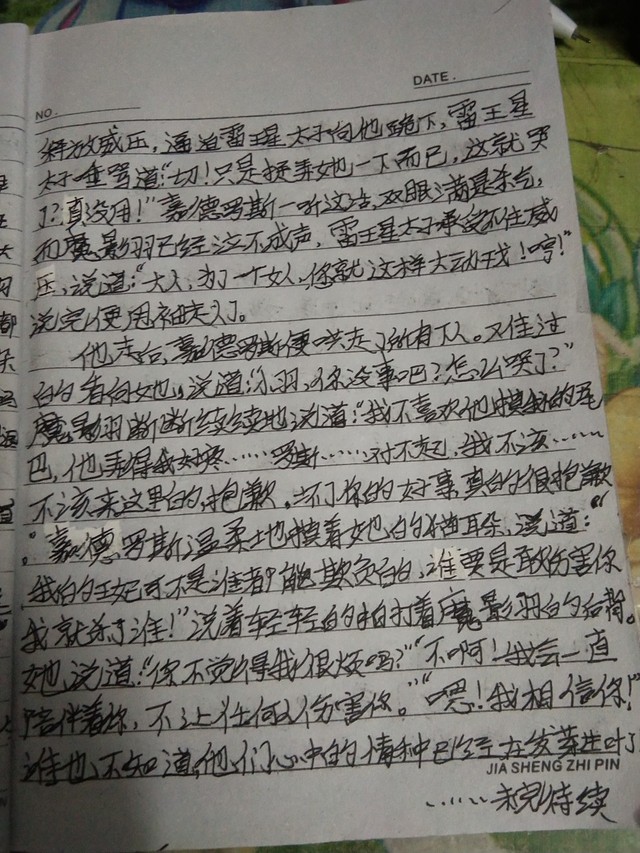 NO.
DATE.
释放威压，逼迫雷王星太子向他跪下，雷王星
太子唾骂道：“切！只是捉弄她一下而已，这就哭
了？真没用！”嘉德罗斯一听这话，双眼满是杀气，
而魔影羽已经泣不成声，雷王星太子承受不住威
压，说道：“大人，为了一个女人，你就这样大动干戈！哼！”
说完便甩袖走了。
他走后，嘉德罗斯便哄走了所有下人。又
的看向她，说道：“小羽，你没事吧？怎么哭了？”
魔影羽断断续续地说道：“我不喜欢他摸我的尾
巴，他弄得我好疼……罗斯……对不起，我不该……
不该来这里的，抱歉。坏了你的好事真的很抱歉
。”嘉德罗斯温柔地摸着她的猫耳朵，说道：“
我的王妃可不是谁都能欺负的，谁要是敢伤害你
我就杀了谁！”说着轻轻的拍打着魔影羽的后背。
她说道：“你不觉得我很烦吗？”“不啊！我会一直
陪伴着你，不让任何人伤害你。”“嗯！我相信你！”
谁也不知道，他们心中的情种已经在发芽生叶了
JIA SHENG ZHI PIN
……未完待续